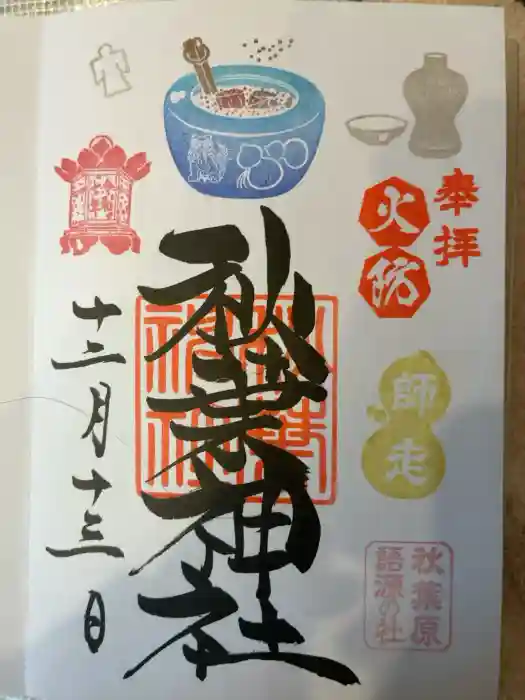 奉拝
火防
師走
秋葉原
語源の社
秋葉神社
十二月十三日